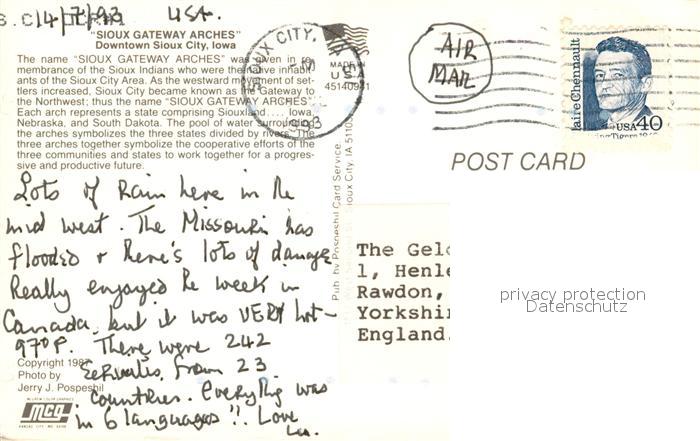 14/7/93 USA.
"SIOUX GATEWAY ARCHES"
Downtown Sioux City, Iowa
The name "SIOUX GATEWAY ARCHES" was given in re-
membrance of the Sioux Indians who were the native inhabit-
ants of the Sioux City Area. As the westward movement of set-
tlers increased, Sioux City became known as the Gateway to
the Northwest; thus the name "SIOUX GATEWAY ARCHES".
Each arch represents a state comprising Siouxland.... Iowa,
Nebraska, and South Dakota. The pool of water surrounding
the arches symbolizes the three states divided by rivers. The
three arches together symbolize the cooperative efforts of the
three communities and states to work together for a progres-
sive and productive future.
Lots of rain here in the
mid west. The Missouri has
flooded & there's lots of damage
Really enjoyed the week in
Canada, but it was VERY hot -
97°F. There were 242
from 23
countries. Everything was
in 6 languages!! Love
Copyright 1987
Photo by
Jerry J. Pospeshil
McGREW COLOR GRAPHICS
mcg
KANSAS CITY, MO
SIOUX CITY,
1993
MADE IN
USA
45140941
AIR
MAIL
laire Chennault
USA 40
POST CARD
Pub. by Pospeshil Card Service Sioux City, IA 5110
The Geld
1, Henle
Rawdon,
Yorkshir
England.
privacy protection
Datenschutz